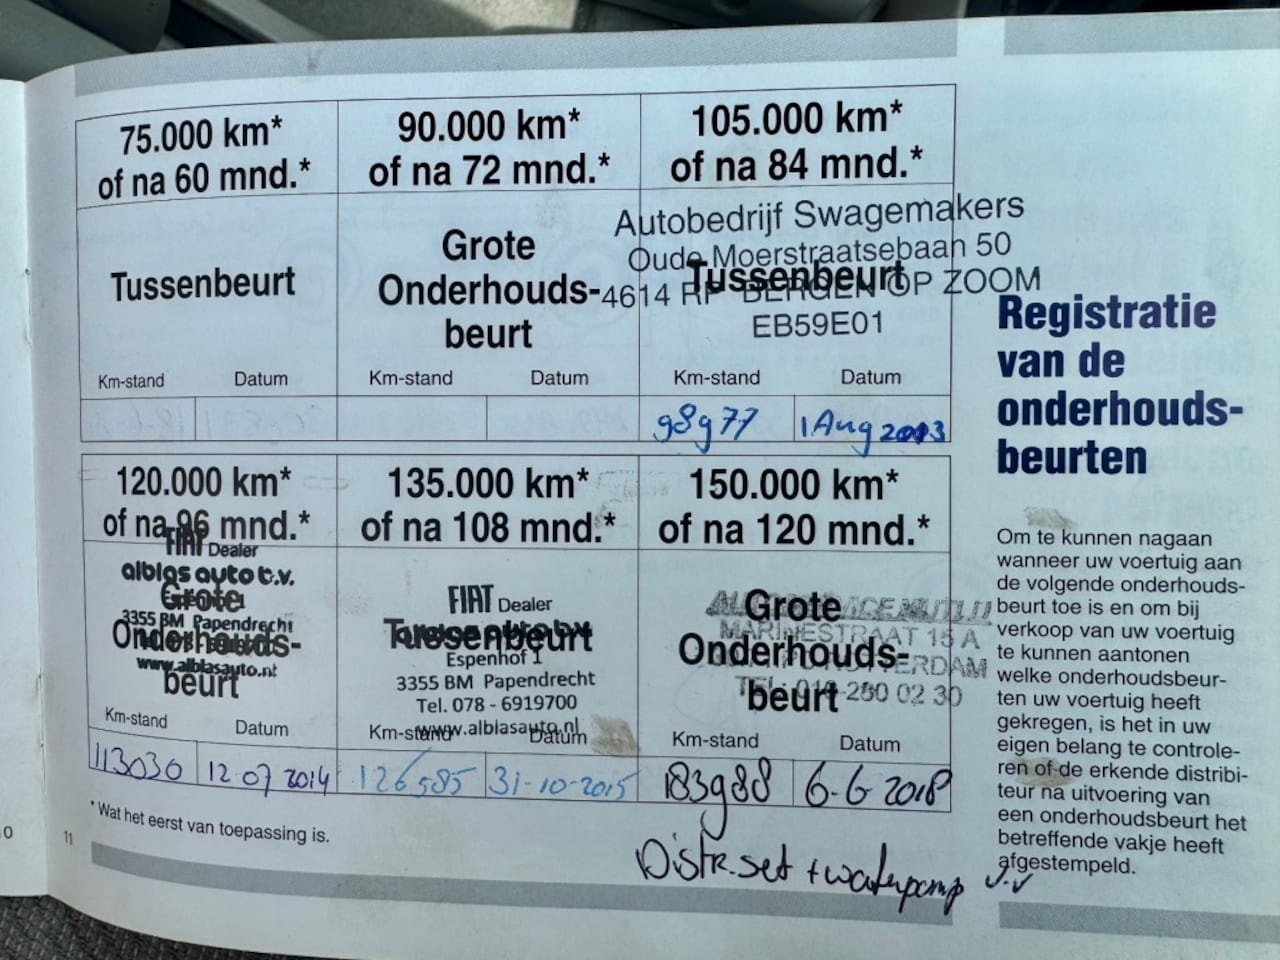 75.000 km*
of na 60 mnd.*
Tussenbeurt
Km-stand Datum
90.000 km*
of na 72 mnd.*
Grote
Onderhouds-
beurt
Km-stand Datum
105.000 km*
of na 84 mnd.*
Autobedrijf Swagemakers
Oude Moerstraatsebaan 50
Tussenbeurt
4614 RP BERGEN OP ZOOM
EB59E01
Km-stand Datum
98977 1 Aug 2013
120.000 km*
of na 96 mnd.*
FIAT Dealer
alblas auto b.v.
Grote
3355 BM Papendrecht
Onderhouds-
www.alblasauto.nl
beurt
Km-stand Datum
113030 12-07 2014
135.000 km*
of na 108 mnd.*
FIAT Dealer
Tussenbeurt
Espenhof 1
3355 BM Papendrecht
Tel. 078 - 6919700
www.alblasauto.nl
Km-stand Datum
126585 31-10-2015
150.000 km*
of na 120 mnd.*
Grote
MARINESTRAAT 15 A
Onderhouds-
ROTTERDAM
beurt
TEL: 010-280 02 30
Km-stand Datum
183988 6-6-2018
Distr.set + waterpomp
* Wat het eerst van toepassing is.
11
Registratie
van de
onderhouds-
beurten
Om te kunnen nagaan
wanneer uw voertuig aan
de volgende onderhouds-
beurt toe is en om bij
verkoop van uw voertuig
te kunnen aantonen
welke onderhoudsbeur-
ten uw voertuig heeft
gekregen, is het in uw
eigen belang te controle-
ren of de erkende distribi-
teur na uitvoering van
een onderhoudsbeurt het
betreffende vakje heeft
afgestempeld.